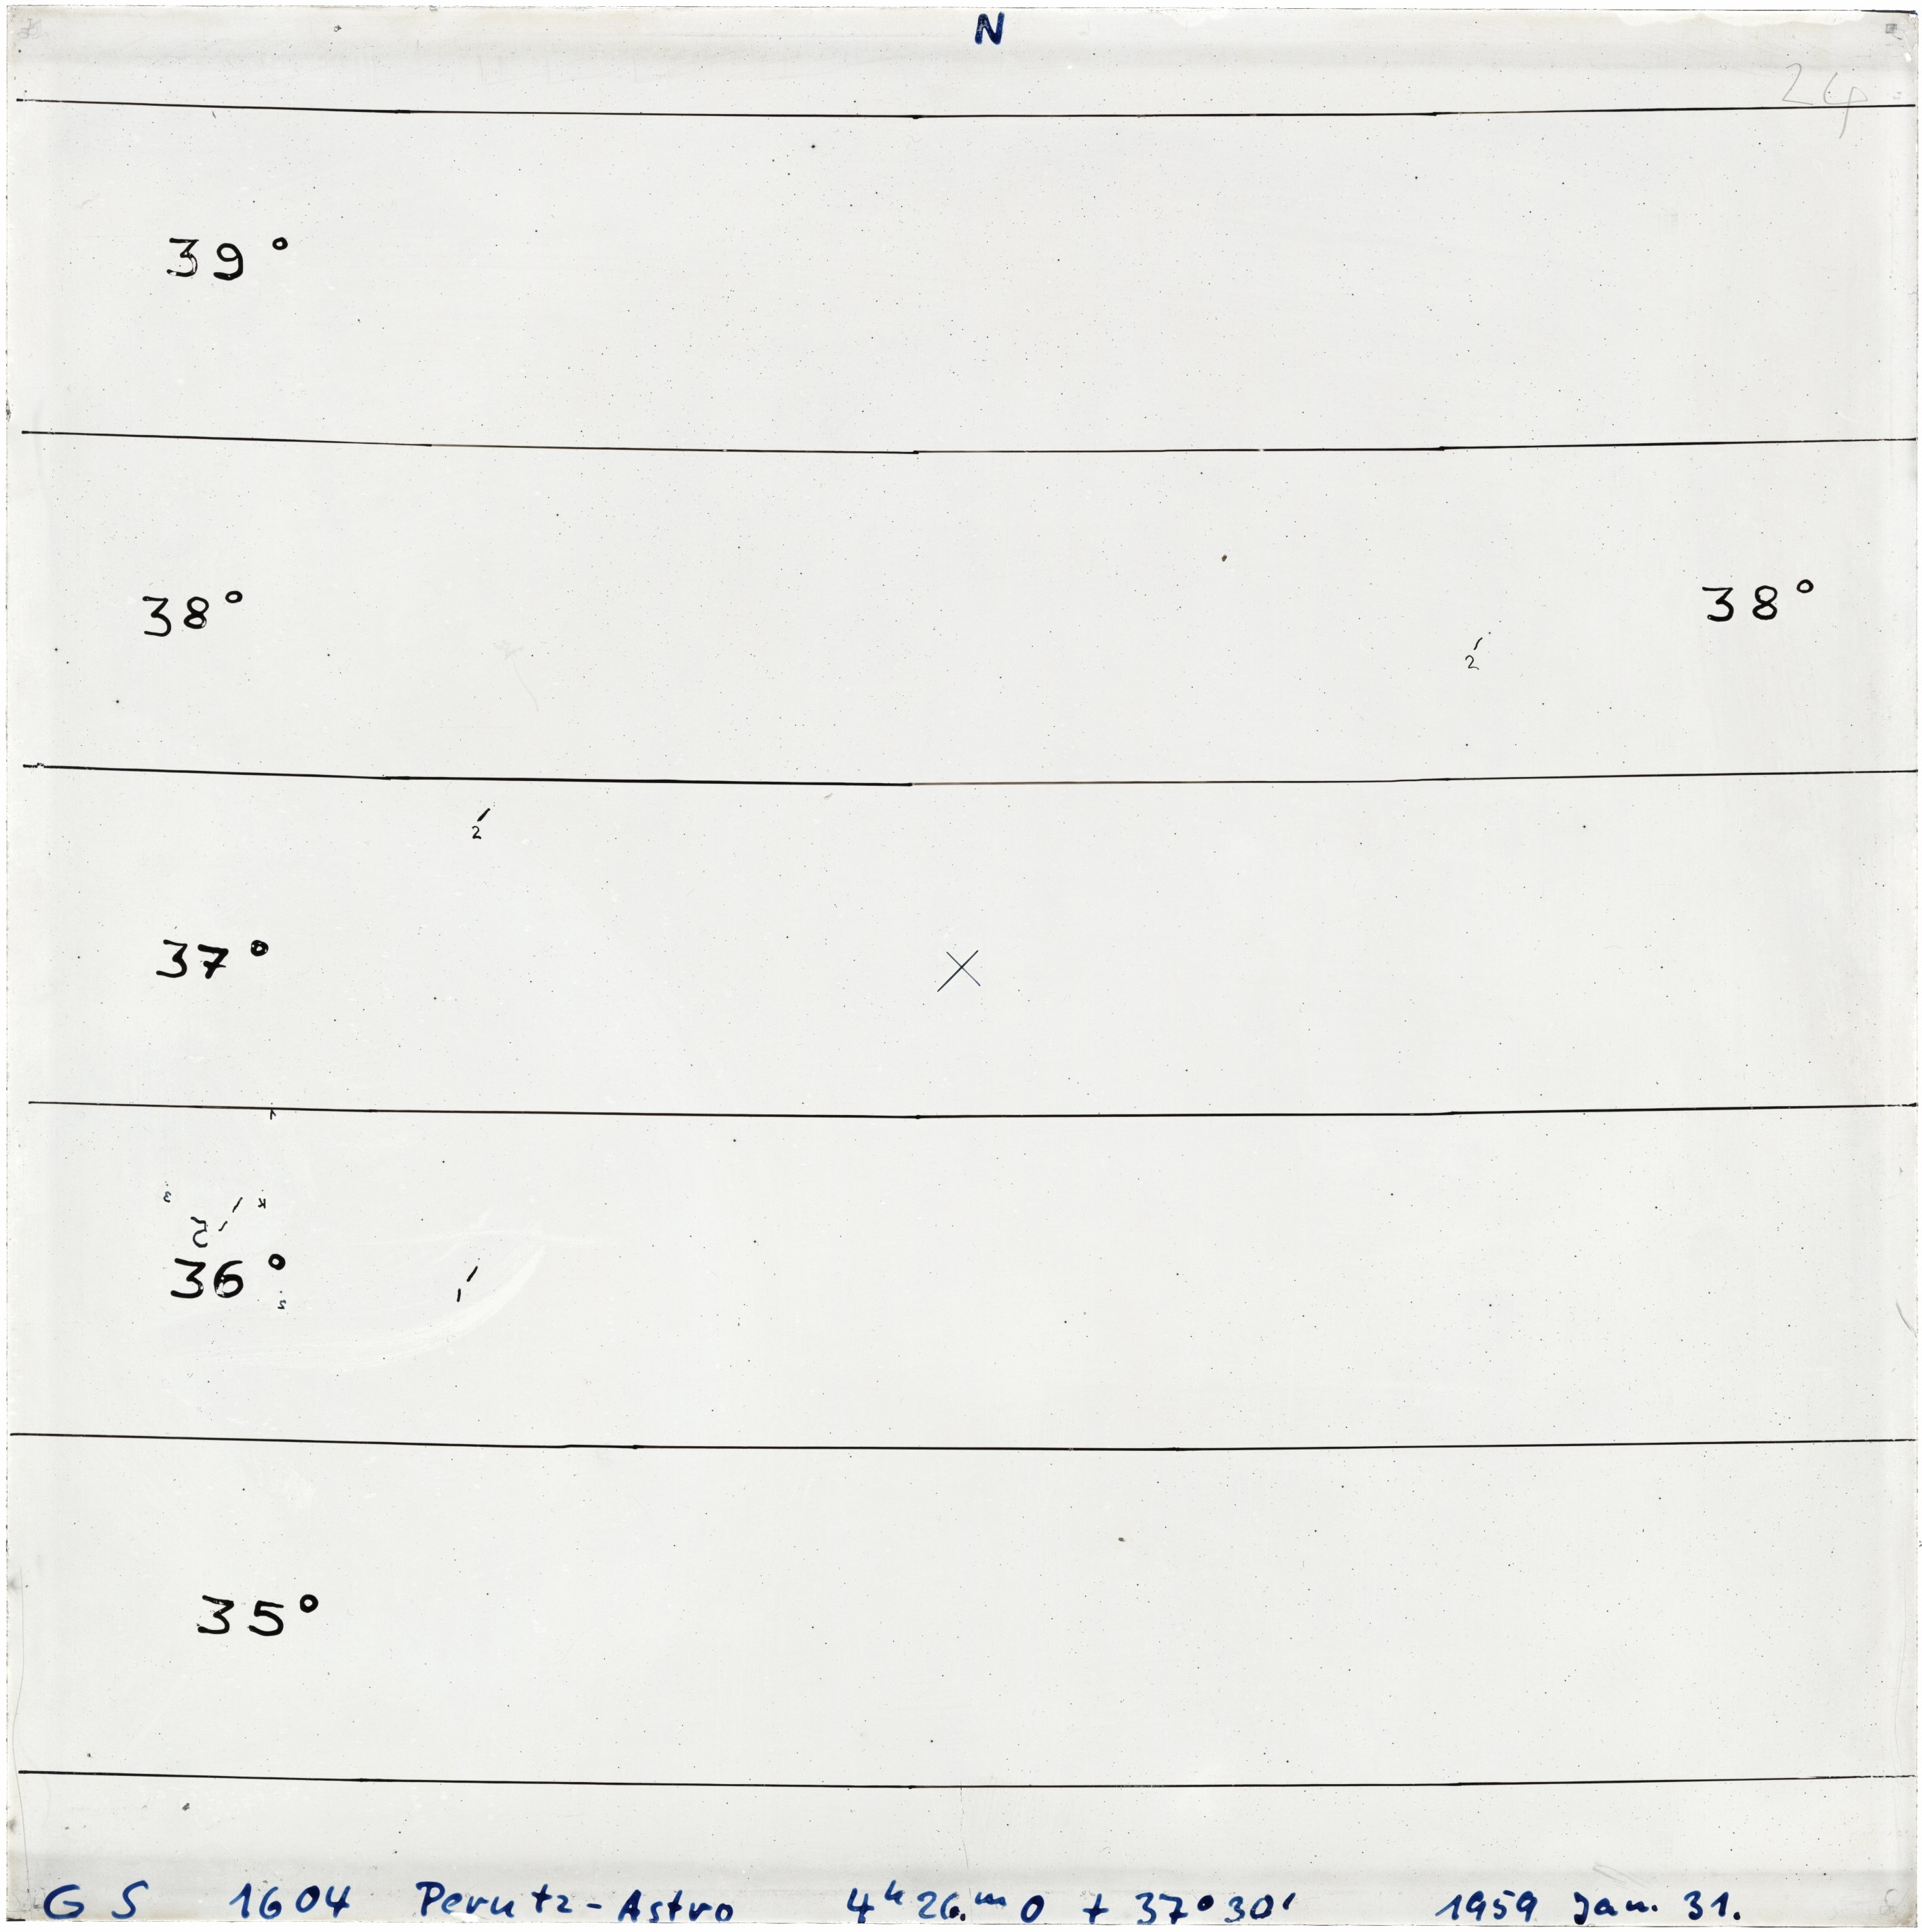 N
24
39°
38° 38°
2
2
37°
36°
35°
GS 1604 Perutz-Astro 4ʰ26.ᵐ0 + 37°30' 1959 Jan. 31.